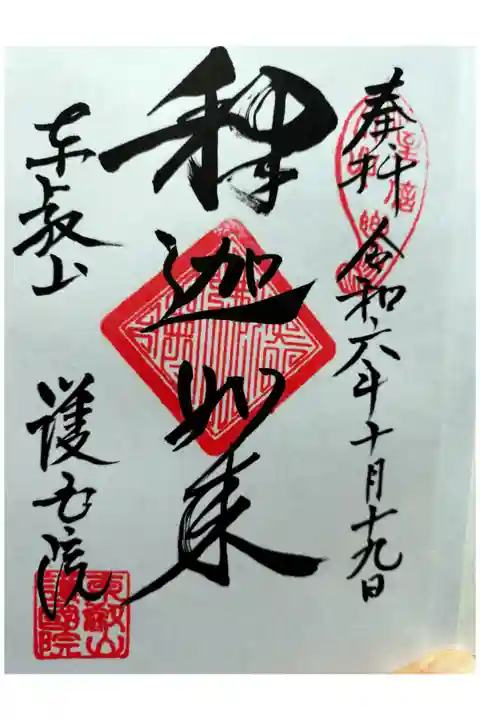 奉拝 令和六年十月十九日
釈迦如来
東叡山 護国院
東叡山
護国院